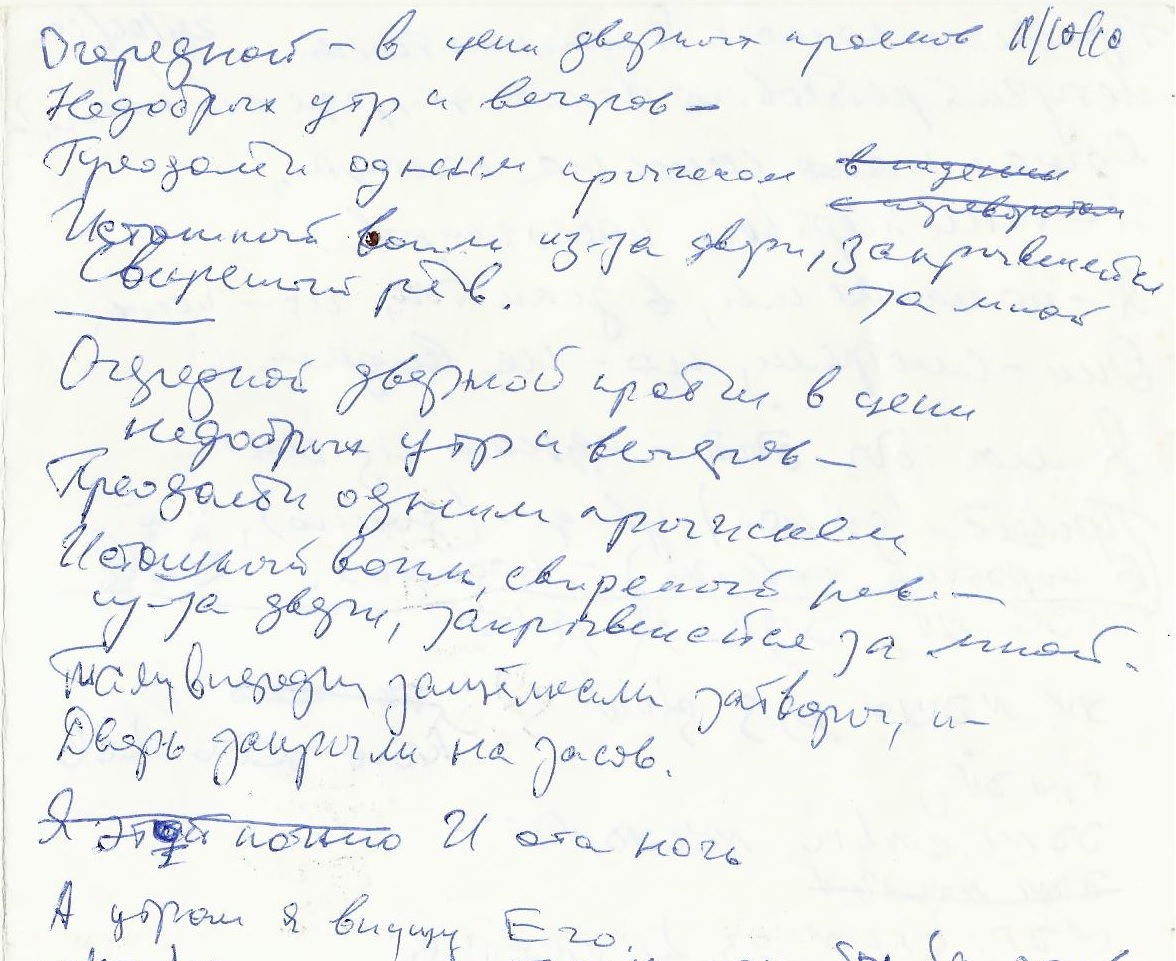 Очередной – в цепи дверных проемов 11/10/10
Недобрых утр и вечеров –
Преодолеть одним прыжком в падении
с переворотом
Истошный вопль из-за двери, закрывшейся
за мной
Свирепый рёв.
Очередной дверной проём в цепи
недобрых утр и вечеров –
Преодолеть одним прыжком
Истошный вопль, свирепый рев –
из-за двери, закрывшейся за мной.
Там, впереди, защёлкали затворы, и –
Дверь закрыли на засов.
Я этой ночью И эта ночь
А утром я вижу Его.